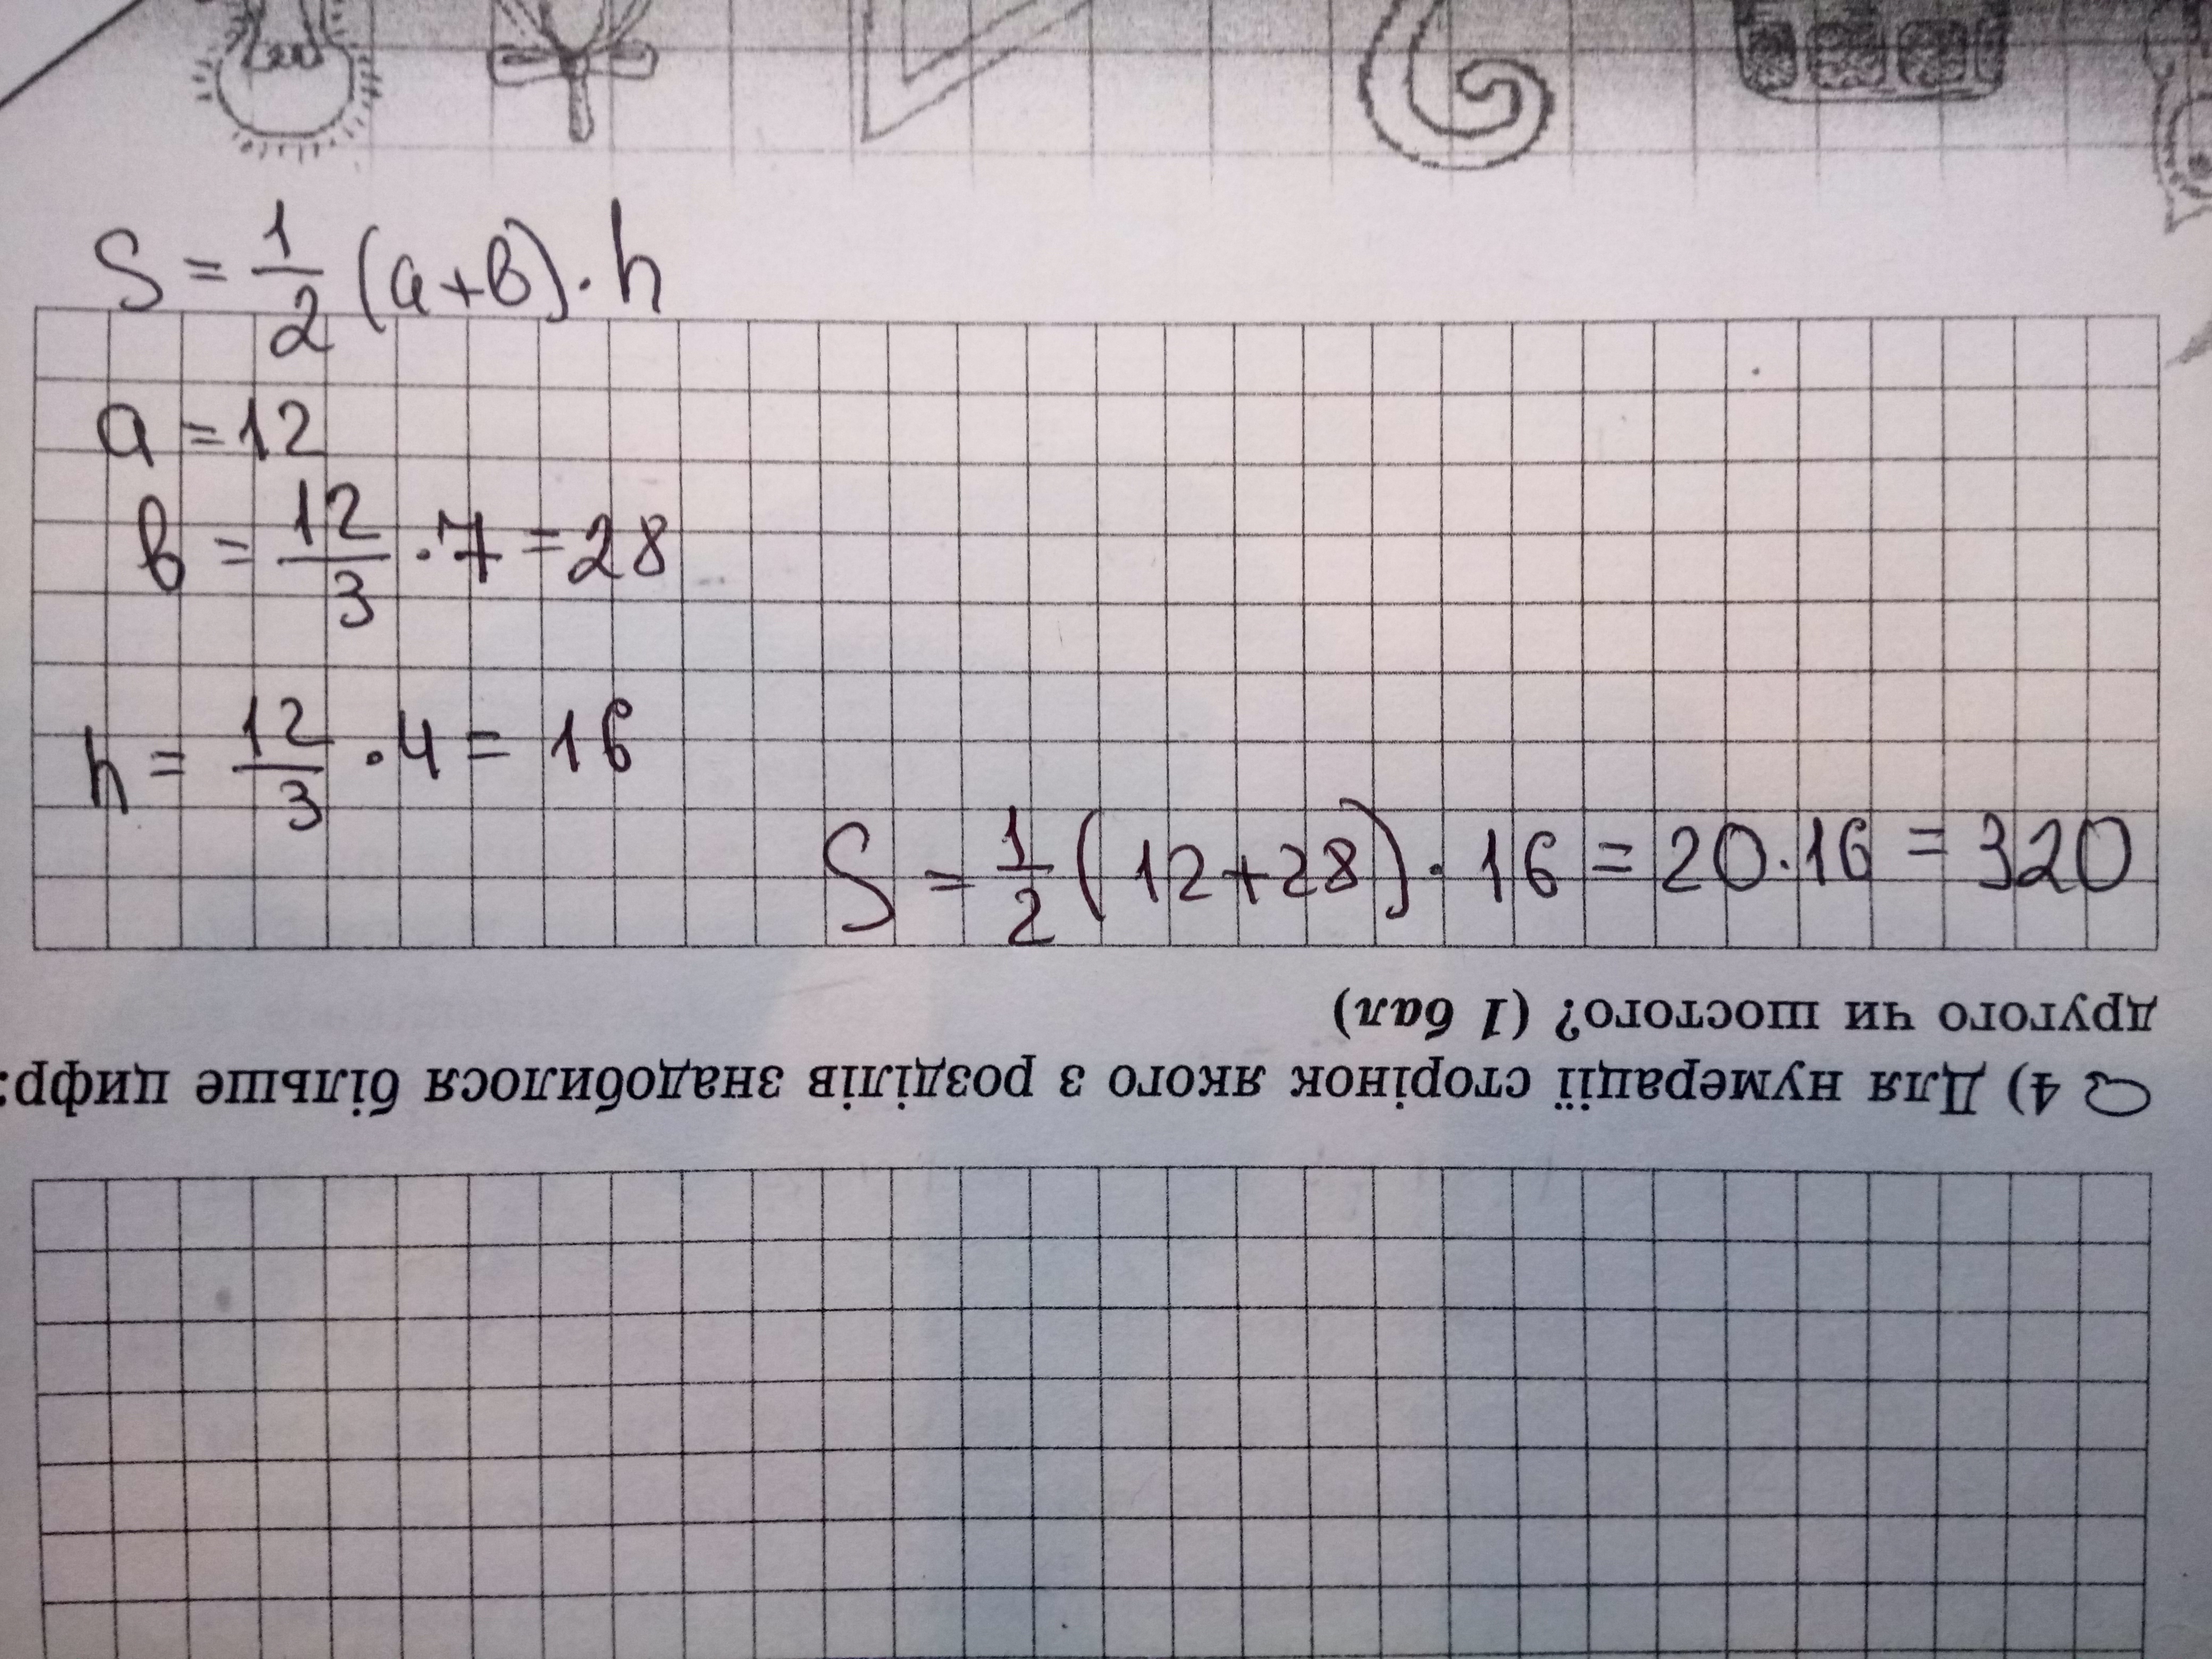 S = 1/2 (a+b)·h
a = 12
b = 12/3 · 7 = 28
h = 12/3 · 4 = 16
S = 1/2 (12+28) · 16 = 20·16 = 320
4) Для нумерації сторінок якого з розділів знадобилося більше цифр:
другого чи шостого? (1 бал)